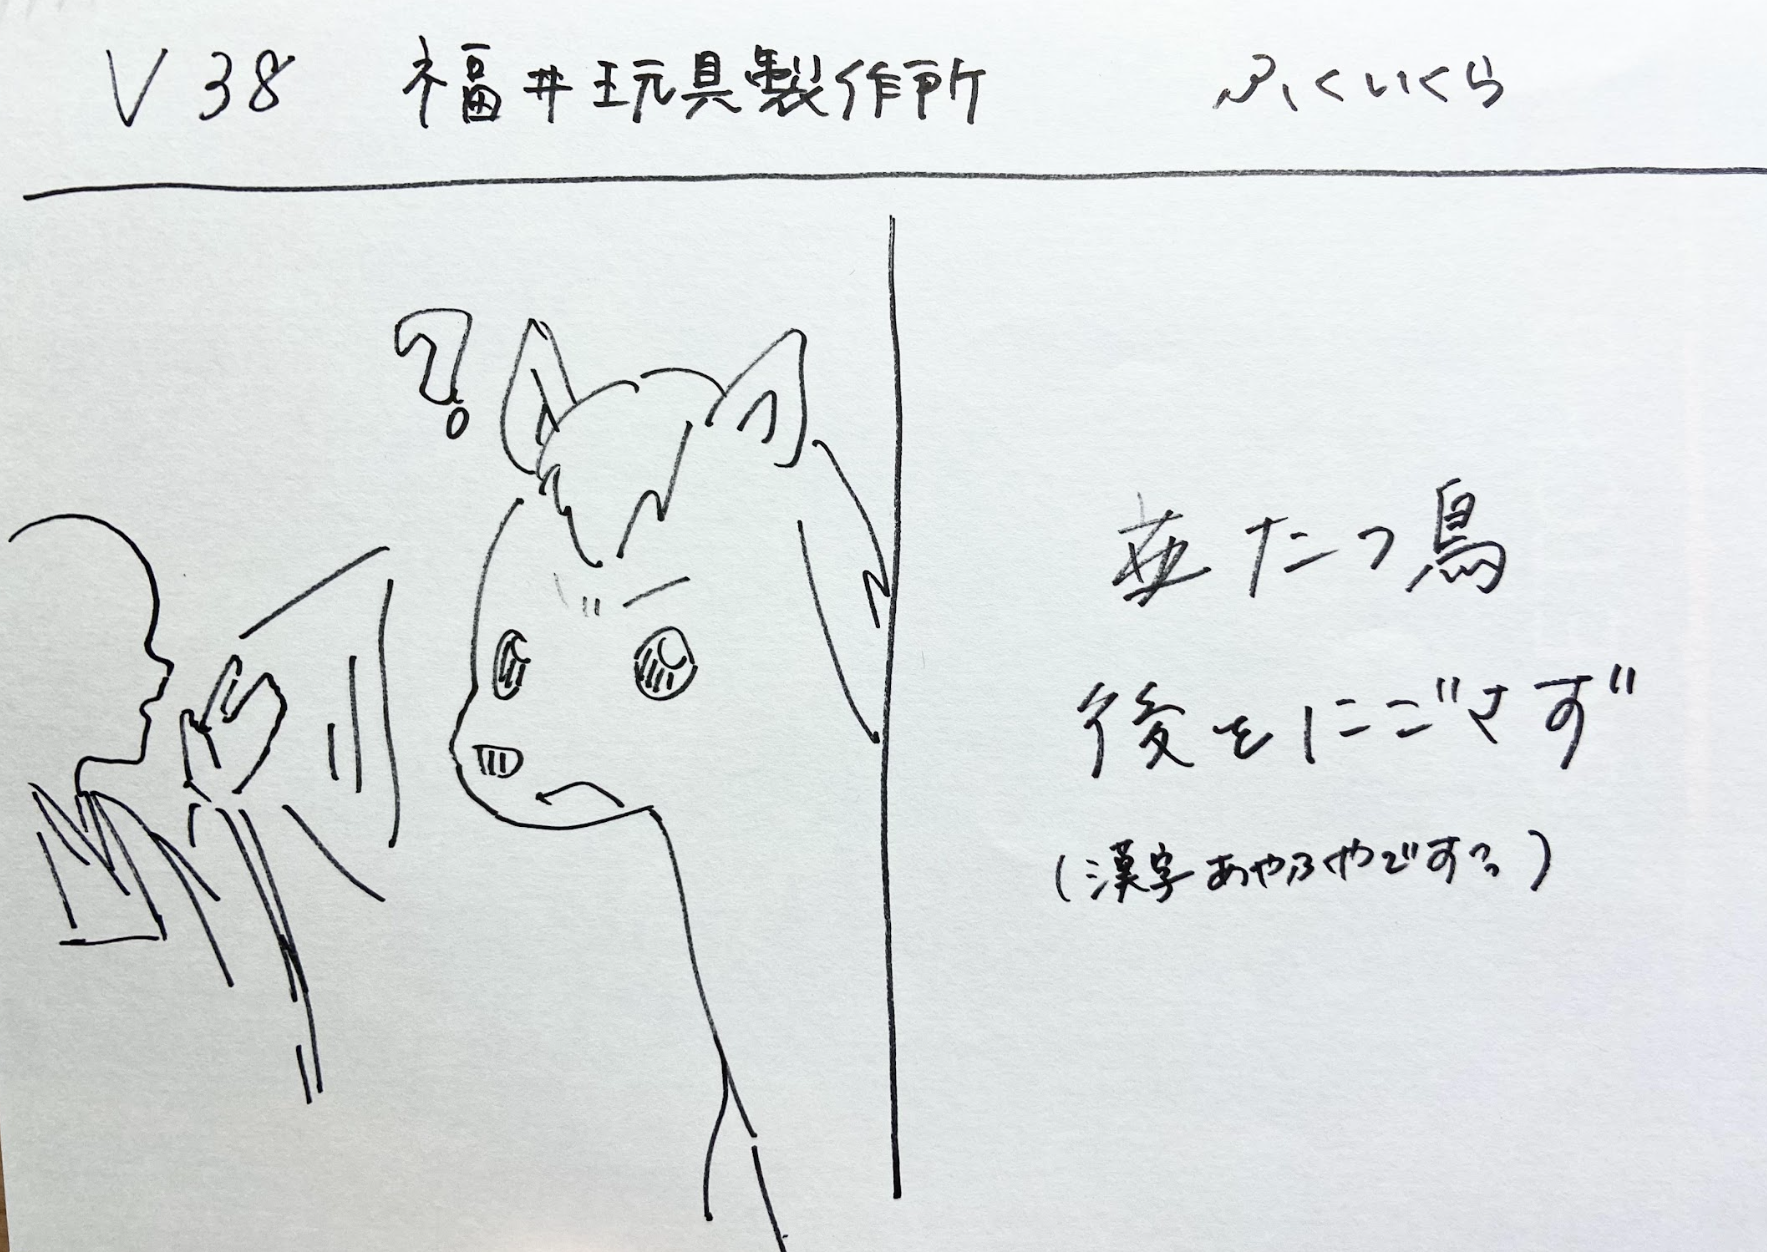 V38 福井玩具製作所 ふくいくら
?
たつ鳥
後をにごさず
(漢字あやふやですっ)